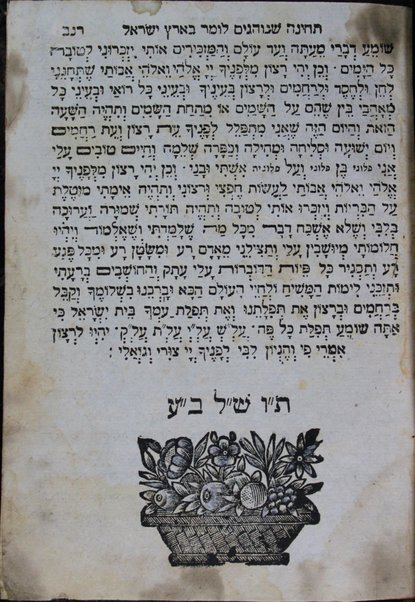 תחינה שנוהגים לומר בארץ ישראל רנב
שומע דברי מעתה ועד עולם והמזכירים אותי יזכרוני לטובה
כל הימים · וכן יהי רצון מלפניך יי אלהי ואלהי אבותי שתתנני
לחן ולחסד ולרחמים ולרצון בעיניך ובעיני כל רואי ובעיני כל
מארבי בין שהם על השמים או מתחת השמים ותהיה השעה
הזאת והיום הזה שאני מתפלל לפניך עת רצון ועת רחמים
ויום ישועה וסליחה ומחילה וכפרה שלמה וחיים טובים עלי
אני פלוני בן פלוני ועל פלונית אשתי ובני · וכן יהי רצון מלפניך יי
אלהי ואלהי אבותי לעשות חפצי ורצוני ותהיה אימתי מוטלת
על הבריות ויזכרו אותי לטובה ותהיה תורתי שמורה וערוכה
בלבי ושלא אשכח דבר מכל מה שלמדתי ושאלמוד ויהיו
חלומותי מיושבין עלי ותצילני מאדם רע ומשטן רע ומכל פגע
רע ותסגיר כל פיות הדוברות עלי עתק והחושבים ברעתי
ותזכני לימות המשיח ולחיי העולם הבא וברכנו בשלומך וקבל
ברחמים וברצון את תפלתנו ואת תפלת עמך בית ישראל כי
אתה שומע תפלת כל פה · על״ש על״י על״ת על״ק · יהיו לרצון
אמרי פי והגיון לבי לפניך יי צורי וגואלי :
ת״ו ש״ל ב״ע